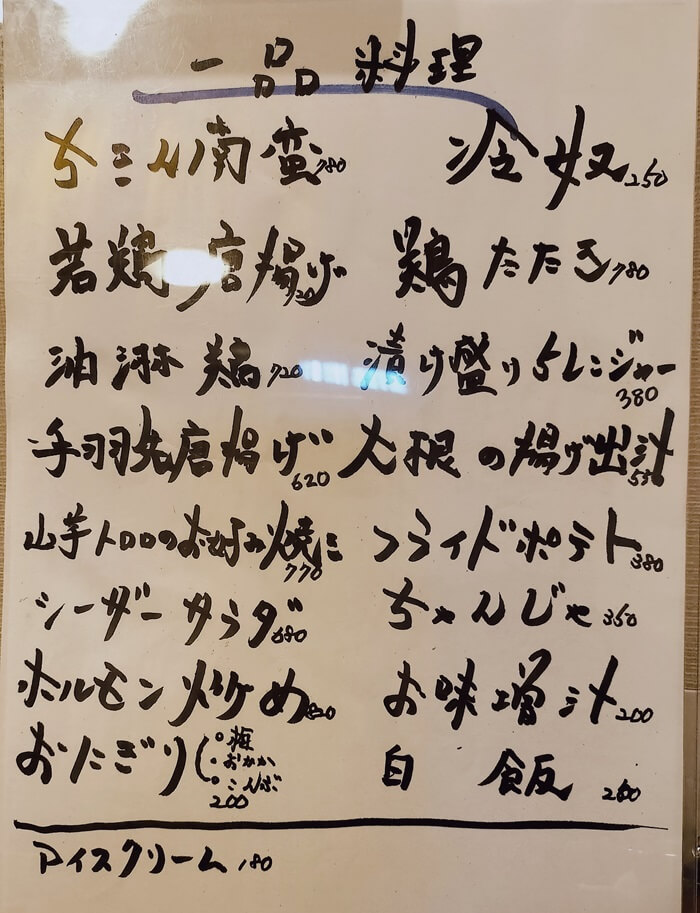 一品料理
ちきん南蛮 780 冷奴 250
若鶏 唐揚げ 鶏たたき 780
油淋鶏 720 漬け盛り5レンジャー 380
手羽先唐揚げ 620 大根の揚げ出汁
山芋トロロのお好み焼に 770 フライドポテト 380
シーザーサラダ 680 ちゃんじゃ 350
ホルモン炒め 820 お味噌汁 200
おにぎり ・梅 ・おかか ・こんぶ 200 白飯 200
アイスクリーム 180